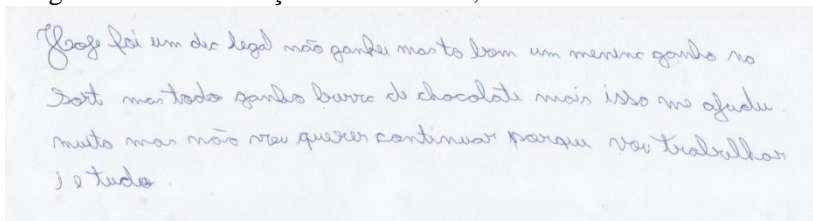 Hoge foi um dia legal não ganhei mas to bom um menino ganho no
sort mas todo ganho burra de chocolate mais isso me ajudu
muito mas não vou querer continuar porque vou trabalhar
i e tudo.